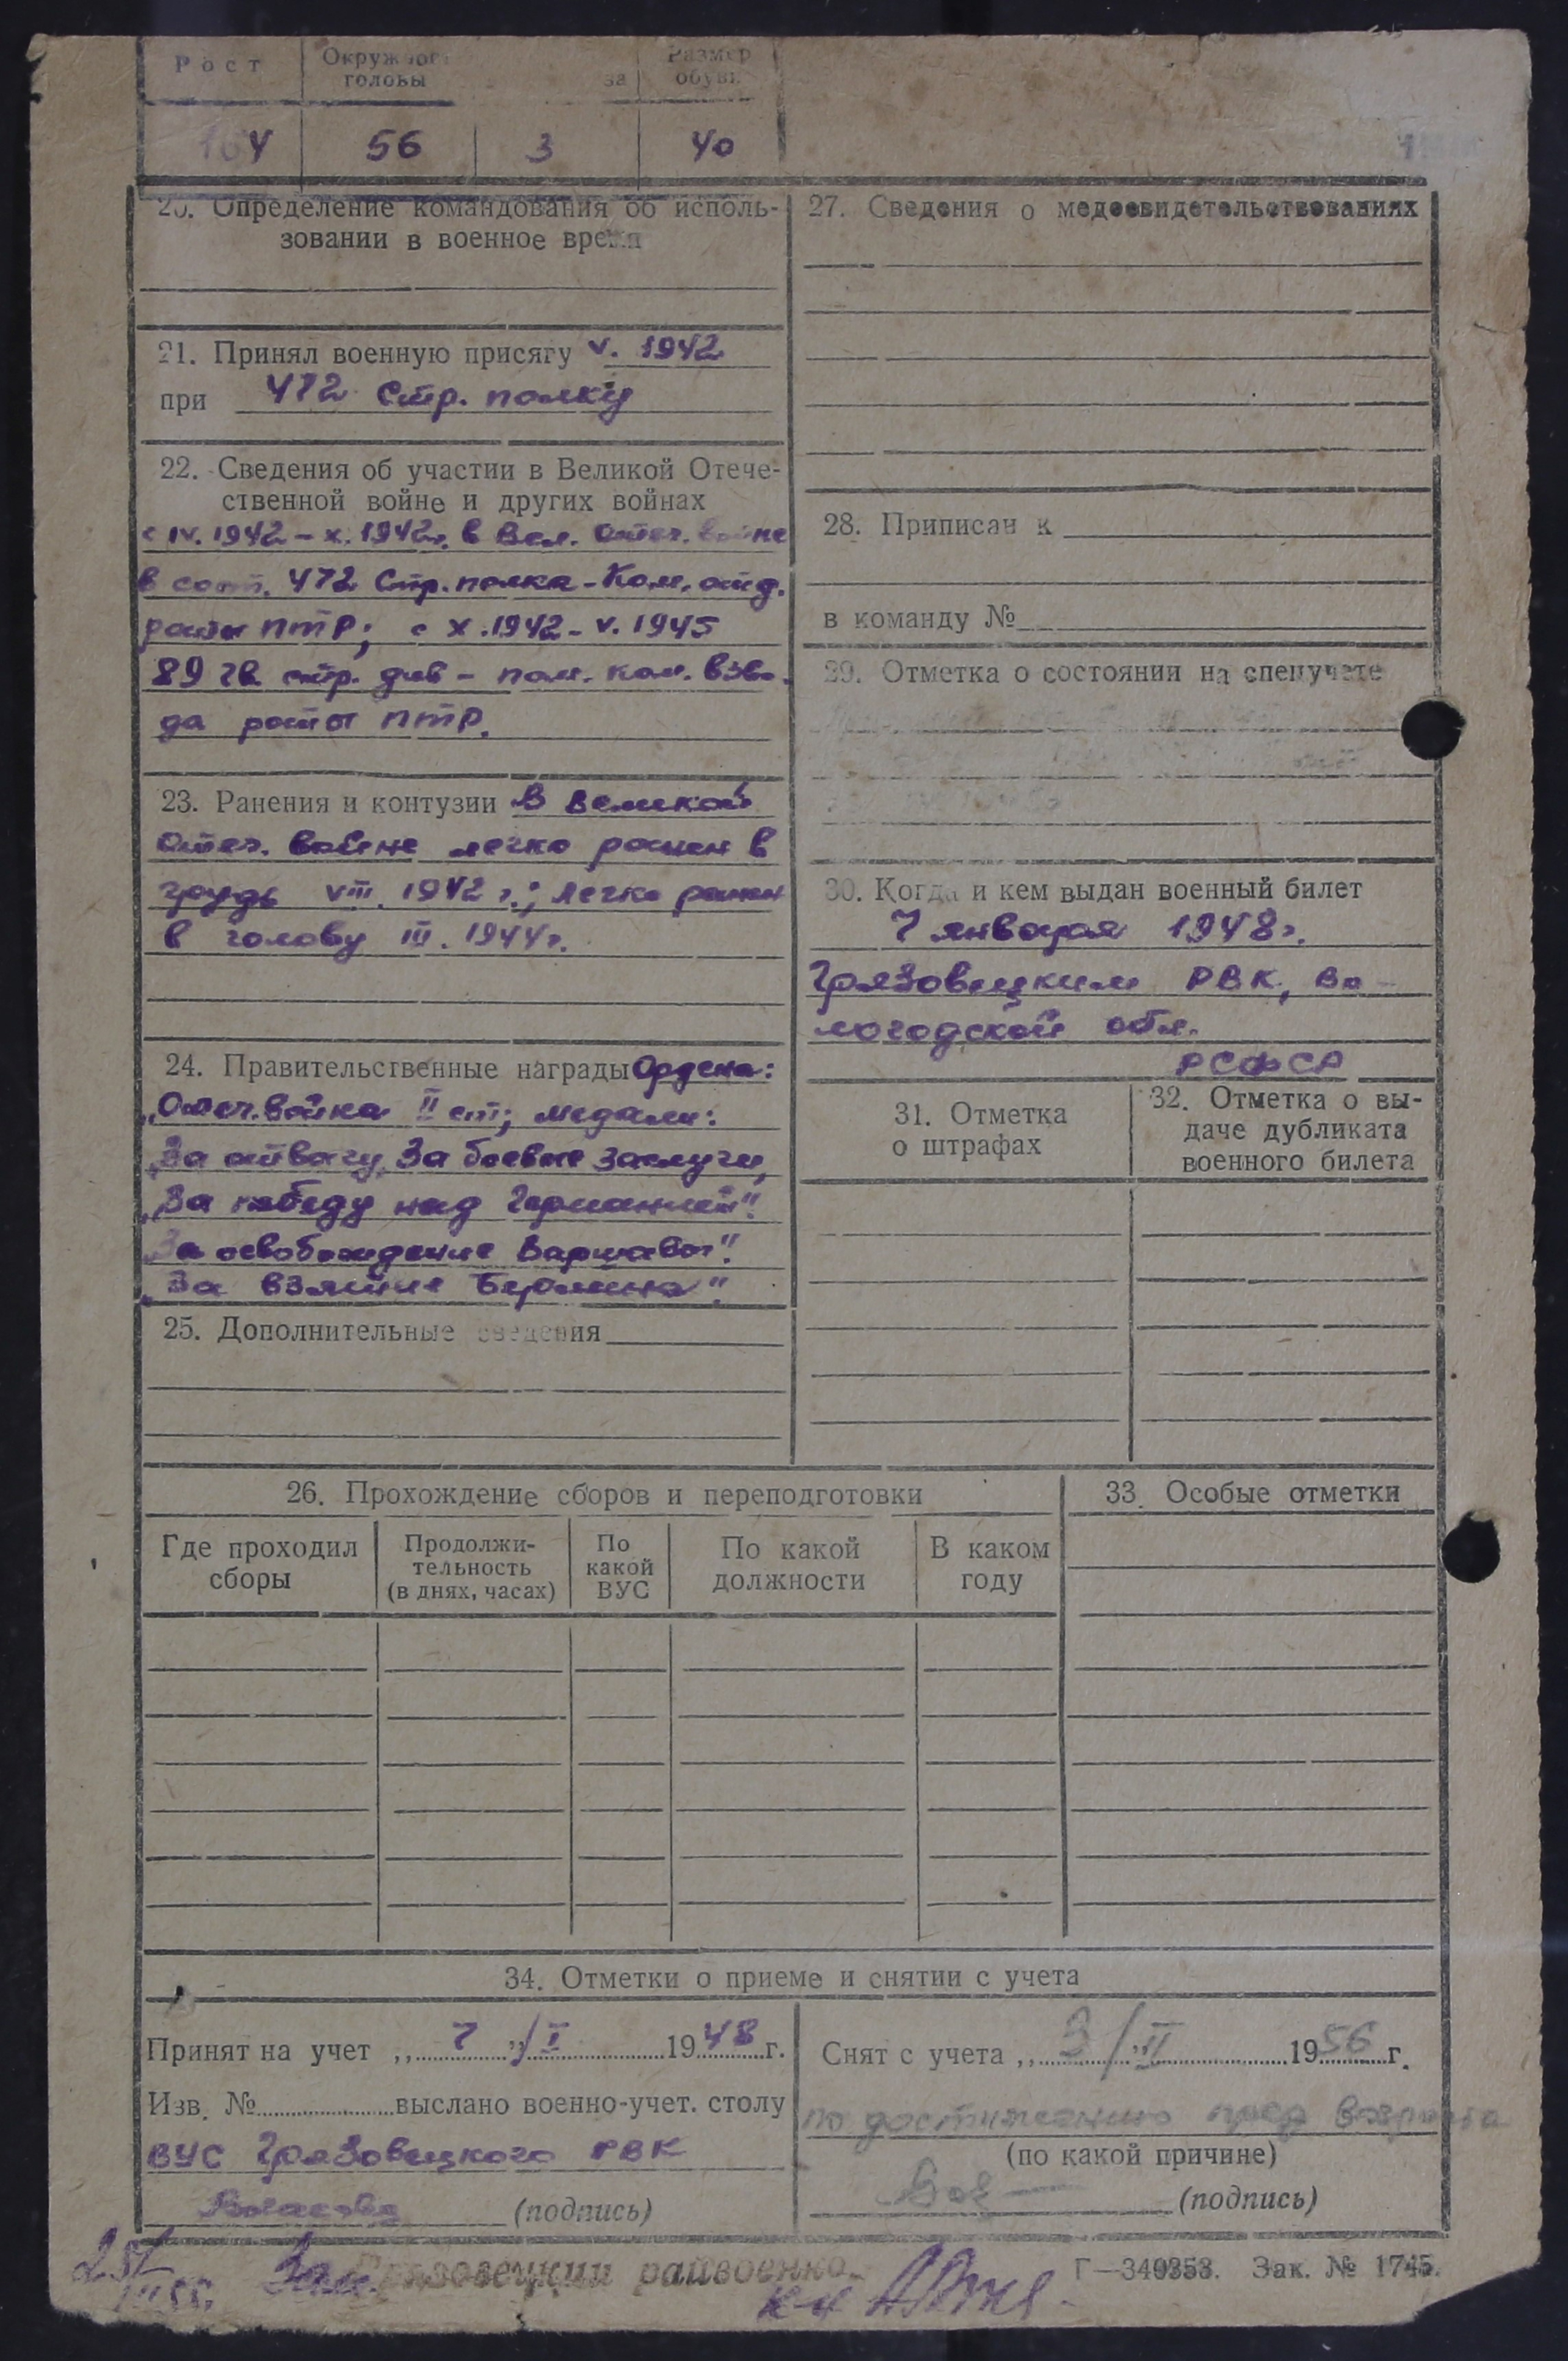 Рост
Окружност головы
за
Размер обуви
164 56 3 40
20. Определение командования об исполь-
зовании в военное время
21. Принял военную присягу V. 1942
при 472 Стр. полку
22. Сведения об участии в Великой Отече-
ственной войне и других войнах
с IV. 1942 – X. 1942г. в Вел. Отеч. войне
в сост. 472 Стр. полка – Ком. отд.
роты ПТР; с X. 1942 – V. 1945
89 гв. стр. див – пом. ком. взво-
да роты ПТР.
23. Ранения и контузии В Великой
Отеч. войне легко ранен в
грудь VIII. 1942 г.; легко ранен
в голову III. 1944г.
24. Правительственные награды Ордена:
„Отеч. война II ст; медали:
„За отвагу, За боевые заслуги,
„За победу над Германией".
„За освобождение Варшавы".
„За взятие Берлина".
25. Дополнительные сведения
27. Сведения о медосвидетельствованиях
28. Приписан к
в команду №
29. Отметка о состоянии на спецучете
30. Когда и кем выдан военный билет
7 января 1948г.
Грязовецким РВК, Во-
логодской обл.
РСФСР
31. Отметка
о штрафах
32. Отметка о вы-
даче дубликата
военного билета
26. Прохождение сборов и переподготовки
Где проходил
сборы
Продолжи-
тельность
(в днях, часах)
По
какой
ВУС
По какой
должности
В каком
году
33. Особые отметки
34. Отметки о приеме и снятии с учета
Принят на учет „ 7 " I 1948 г.
Изв. № выслано военно-учет. столу
ВУС Грязовецкого РВК
(подпись)
Снят с учета „ 3 " II 1956 г.
по достижению пред возраста
(по какой причине)
(подпись)
Зам. Грязовецкий райвоенко
Г—349353. Зак. № 1745.